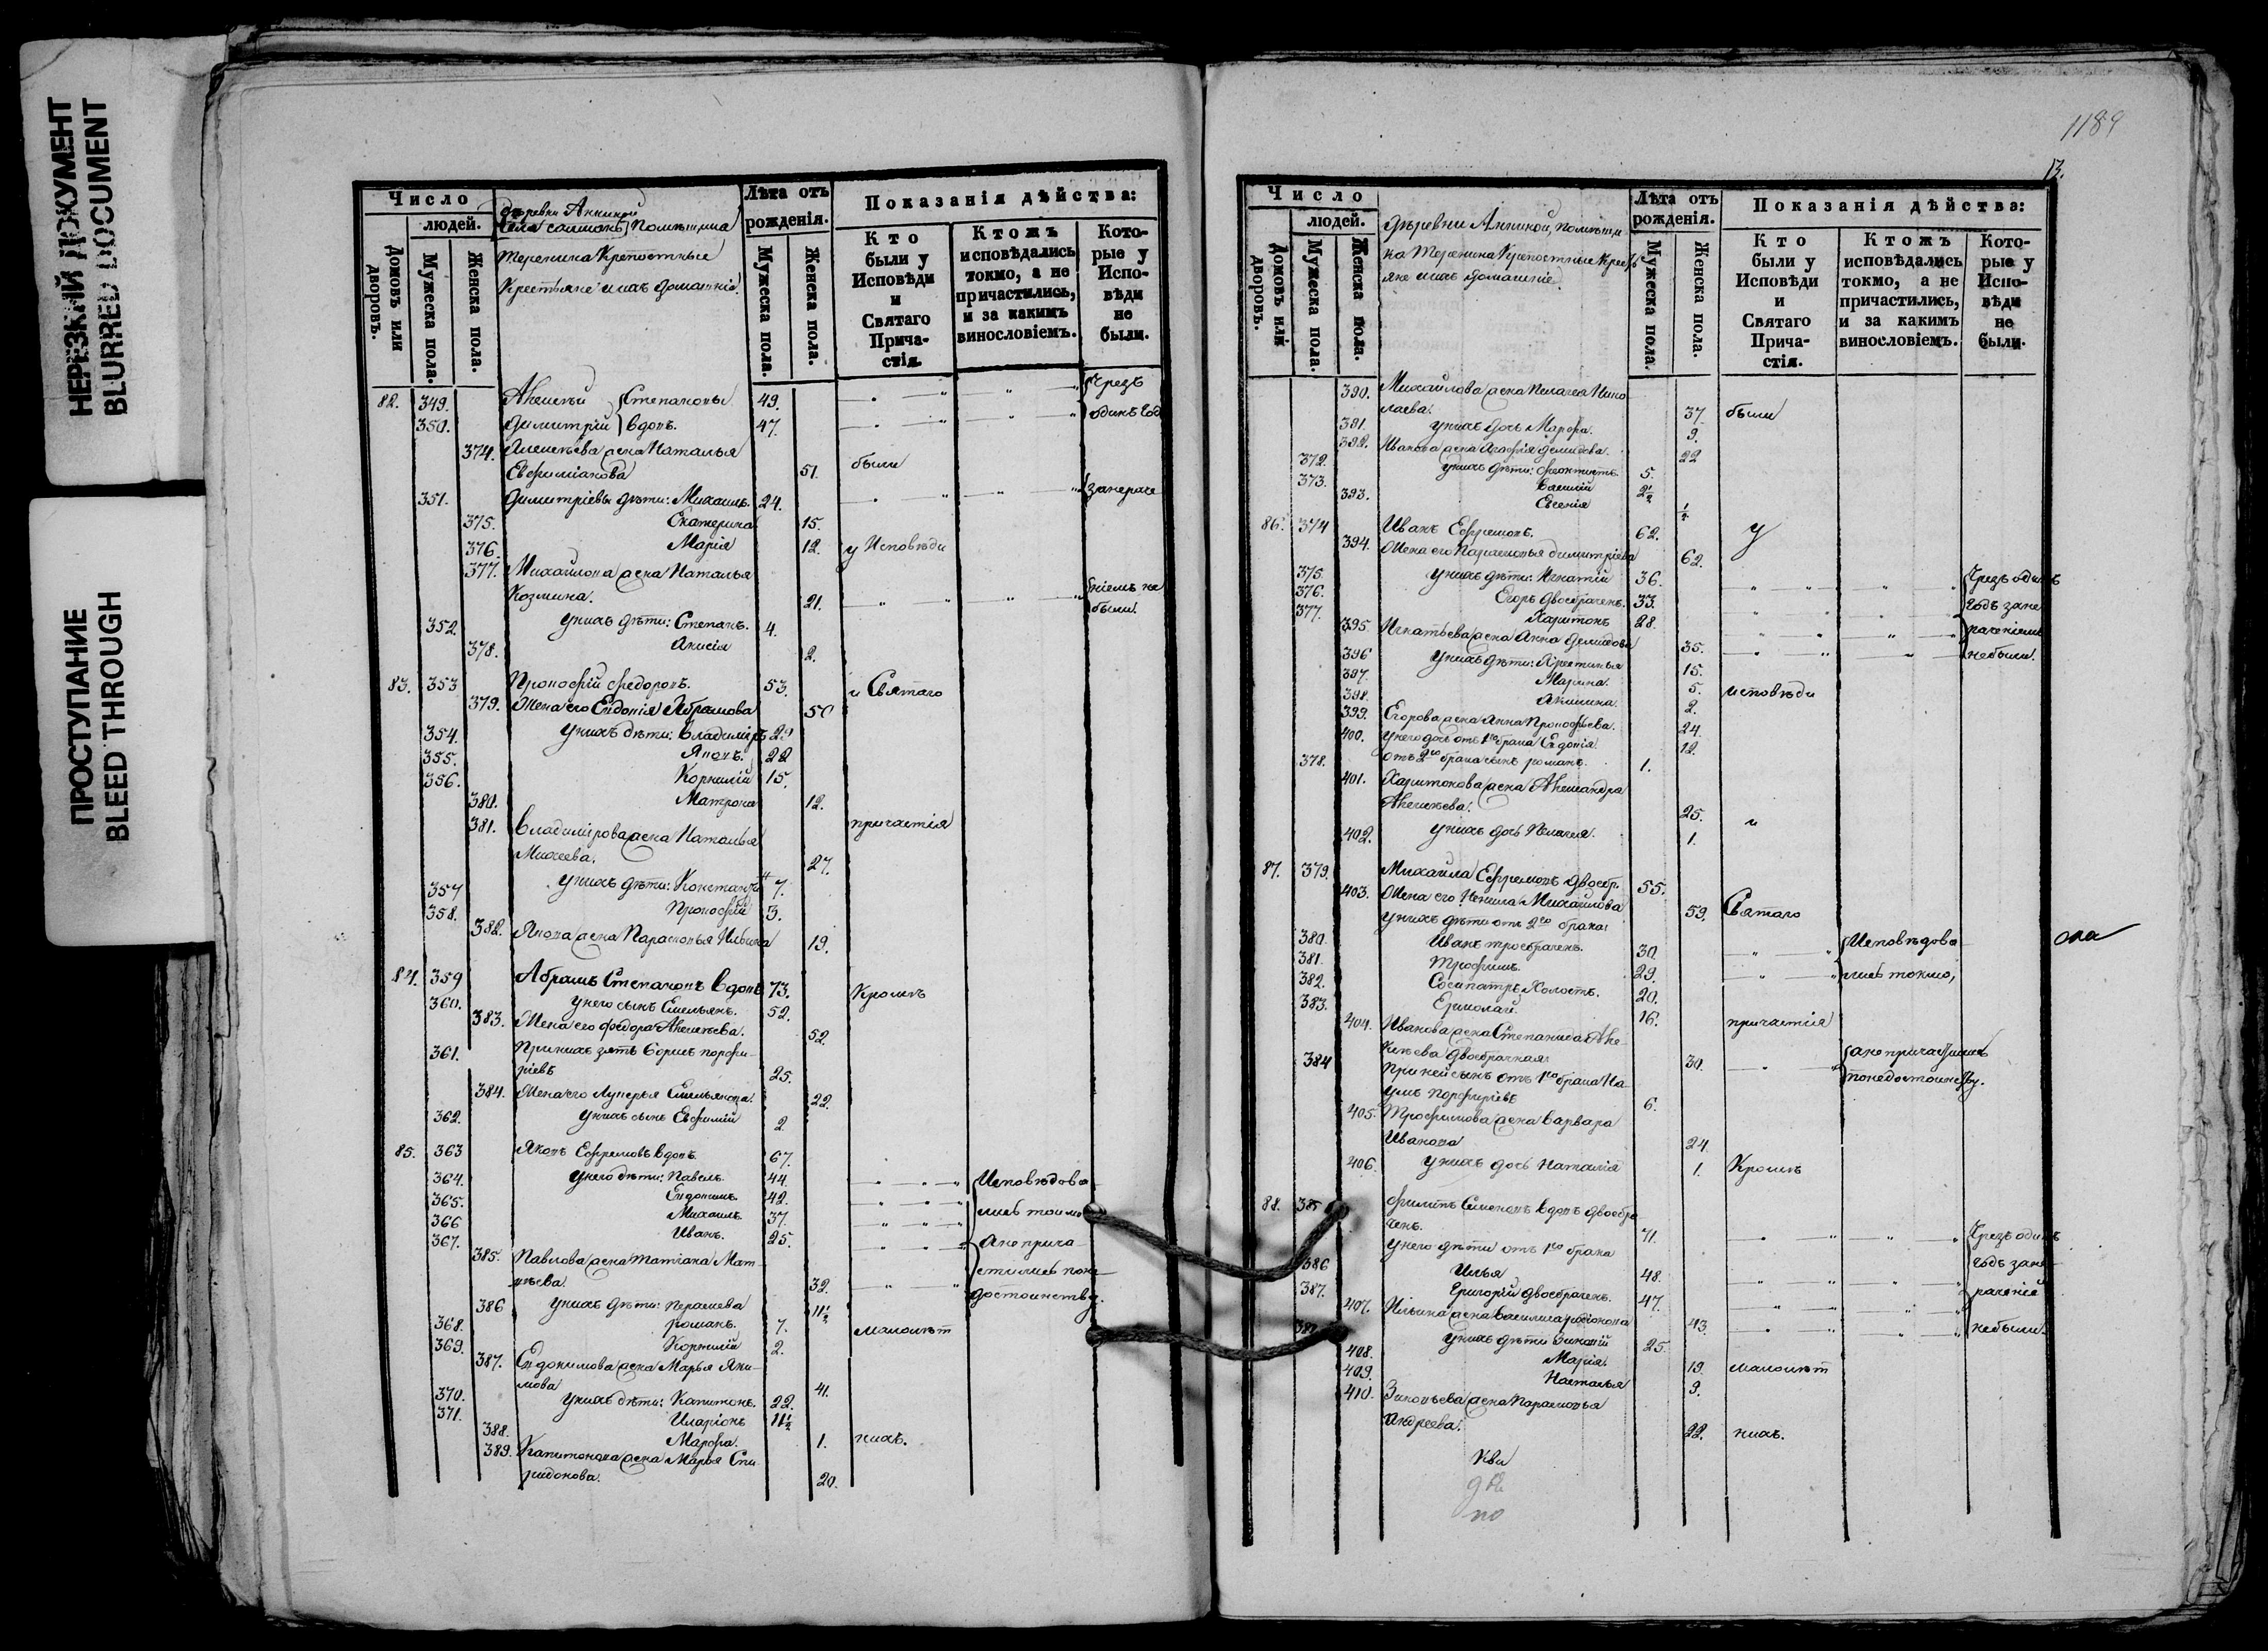 НЕРЕЗКИЙ ДОКУМЕНТ
BLURRED DOCUMENT
ПРОСТУПАНИЕ
BLEED THROUGH
Число
людей.
Домовъ или дворовъ.
Мужеска пола.
Женска пола.
Деревни Анникой
Помѣщика
Теренина Крепостные
Крестьяне и ихъ домашніе.
Лѣта отъ рожденія.
Мужеска пола.
Женска пола.
Показанія дѣйства:
Кто были у Исповѣди и Святаго Прича-стія.
Ктожъ исповѣдались токмо, а не причастились, и за какимъ винословіемъ.
Кото-рые у Испо-вѣди не были.
82. 349. Алексѣй Степановы 49. Чрезъ
350. Димитрій вдовъ. 47. одинъ год
374. Алексѣева жена Наталья
Евфиміанова 51. были
351. Димитріевы дѣти: Михаилъ. 24. занераче
375. Екатерина 15.
376. Марія 12. у Исповѣди
377. Михайлова жена Наталья
Козмина. 21. ніемъ не были.
352. у нихъ дѣти: Степанъ. 4.
378. Анисія 2.
83. 353 Прокофій Федоровъ. 53. и Святаго
379. Жена его Евдокія Абрамова 50
354. у нихъ дѣти: Владиміръ 29
355. Яковъ. 22
356. Корнилій 15.
380. Матрона 12.
381. Владимірова жена Наталья причастія
Михеева. 27.
357 у нихъ дѣти: Константинъ 7.
358. Прокофій 3.
382. Якова жена Парасковья 19.
84. 359 Абрамъ Степановъ вдовъ 73. Кромѣ
360. у него сынъ Емельянъ. 52.
383. Жена его Федора Алексѣева. 52.
361. При нихъ зять Борисъ Порфи-
ріевъ 25.
384. Жена его Лукерья Емельянова. 22.
362. у нихъ сынъ Евфимій 2.
85. 363 Яковъ Ефремовъ вдовъ. 67.
364. у него дѣти: Павелъ. 44. Исповѣдова
365. Евдокимъ. 42. лись токмо
366 Михаилъ. 37.
367. Иванъ. 25. а не прича
385. Павлова жена Татіана Мат-
вѣева. 32. стились поне достоинству.
386 у нихъ дѣти: 11½
368. Романъ. 7. малолѣт
369. Корнилій 2.
387. Евдокимова жена Марья Яки-
мова 41.
370. у нихъ дѣти: Капитонъ. 22.
371. Иларіонъ 11½
388. Марфа. 1. нихъ.
389. Капитонова жена Марья Спи
ридонова. 20.
1189
13.
Число
людей.
Домовъ или дворовъ.
Мужеска пола.
Женска пола.
Деревни Анникой, Помѣщи
ка Теренина Крепостные Кресть
яне и ихъ домашніе.
Лѣта отъ рожденія.
Мужеска пола.
Женска пола.
Показанія дѣйства:
Кто были у Исповѣди и Святаго Прича-стія.
Ктожъ исповѣдались токмо, а не причастились, и за какимъ винословіемъ.
Кото-рые у Испо-вѣди не были.
390. Михайлова жена Пелагея Нико
лаева. 37. были
391. у нихъ дочь Марфа. 9.
392. Иванова жена Агафія Демидова. 22
372. у нихъ дѣти: Феоктистъ. 5.
373. Василій 2½
393. Евгенія ½
86. 374 Иванъ Ефремовъ. 62. у
394. Жена его Парасковья Димитріева 62.
375. у нихъ дѣти: Игнатій 36. Чрезъ одинъ
376. Егоръ двоебраченъ. 33. годъ зане
377. Харитонъ 28. раченіемъ
395 Игнатьева жена Анна Демидова 35. небыли.
396 у нихъ дѣти: Устинья 15.
397. Марина. 5. исповѣди
398. Акилина. 2.
399. Егорова жена Анна Прокофьева. 24.
400. у него дочь отъ 1го брака Евдокія. 12.
378. отъ 2го брака сынъ Романъ. 1.
401. Харитонова жена Александра
Алексѣева. 25. и
402. у нихъ дочь Пелагея. 1.
87. 379. Михайла Ефремовъ двоебр. 55.
403. Жена его Ненила Михайлова 59. Святаго
у нихъ дѣти отъ 2го брака:
380. Иванъ троебраченъ. 30. Исповѣдова
381. Трофимъ. 29. лись токмо,
382. Сосипатръ Холостъ. 20.
383. Ермолай. 16.
404. Иванова жена Степанида Але- причастія
ксѣева двоебрачная. 30. а не причастились
384 При ней сынъ отъ 1го брака На- понедостоинству.
умъ Порфиріевъ 6.
405. Трофимова жена Варвара
Иванова 24.
406. у нихъ дочь Наталія 1. Кромѣ
88. 385 Филипъ Семеновъ вдовъ двоебра
ченъ. 71. Чрезъ одинъ
у него дѣти отъ 1го брака годъ зане
386 Илья 48.
387. Григорій двоебраченъ. 47. раченіе
407. Ильина жена Василиса Родіонова 43. небыли.
388 у нихъ дѣти Зиновій 25.
408. Марія. 19. малолѣт
409. Наталья 9.
410. Зиновьева жена Парасковья
Андреева. 22. нихъ.